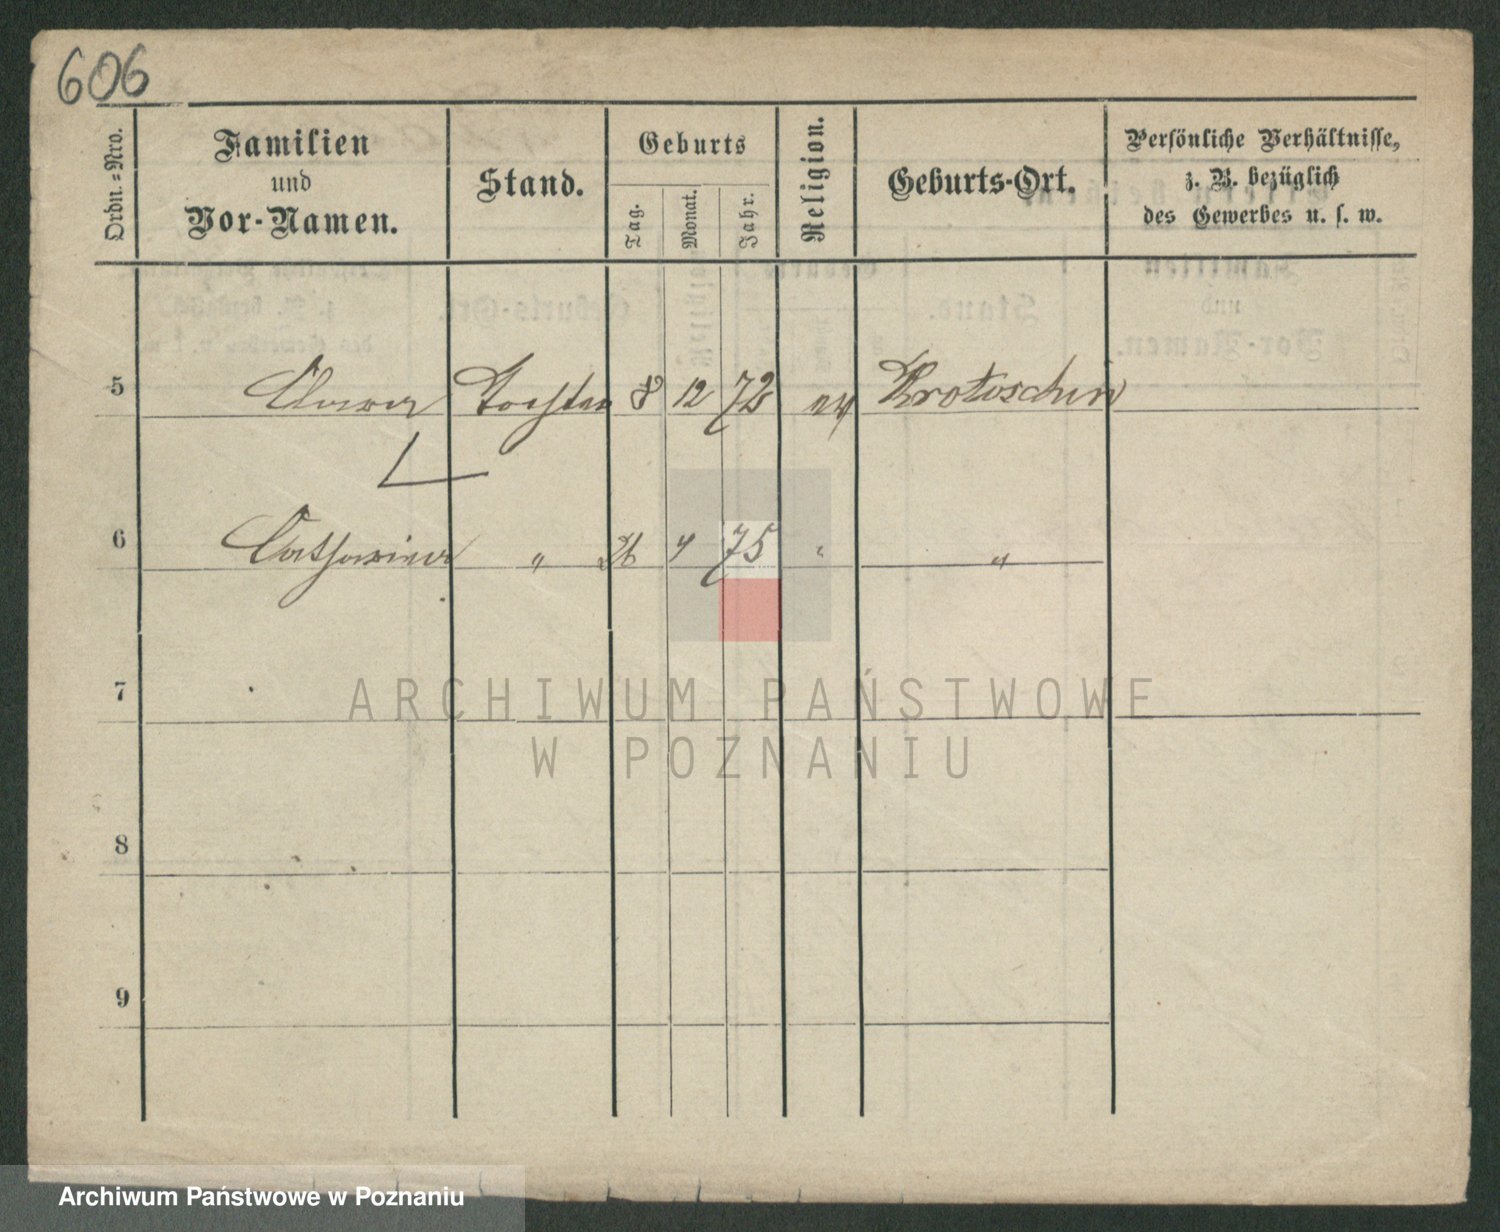 606
Ordn.-Nro.
Familien
und
Vor-Namen.
Stand.
Geburts
Tag.
Monat.
Jahr.
Religion.
Geburts-Ort.
Persönliche Verhältnisse,
z. B. bezüglich
des Gewerbes u. s. w.
5 Tochter 8 12 72 ev Krotoschin
6 Catharina " 26 4 75 " "
7
8
9
ARCHIWUM PAŃSTWOWE
W POZNANIU
Archiwum Państwowe w Poznaniu